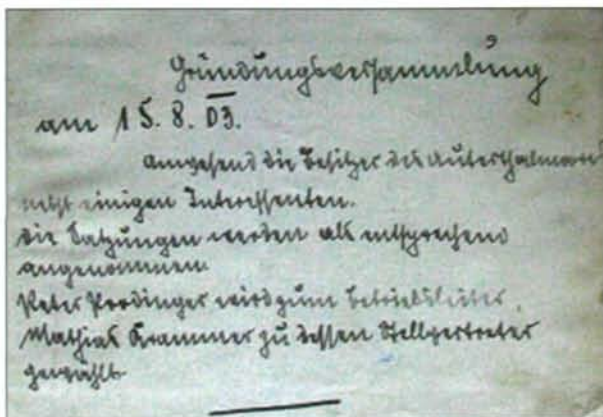 Gründungsversammlung
am 15. 8. 03.
angehend die Besitzer des
nebst einigen Interessenten.
die Satzungen werden als entsprechend
angenommen.
Peter Prodinger wird zum Betriebsleiter,
Mathias Krammer zu dessen Stellvertreter
gewählt.